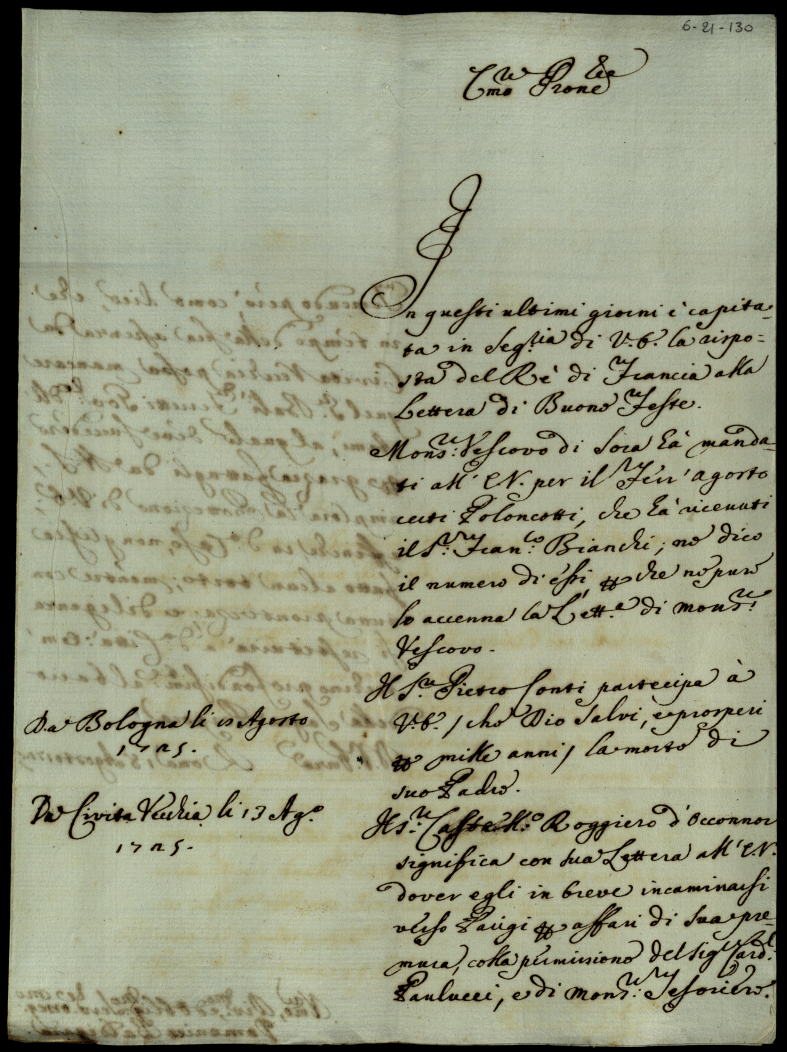 6-21-130
In questi ultimi giorni è capita-
ta in Seg.ria di V.E. la rispo-
sta del Rè di Francia alla
Lettera di Buone Feste.
Mons.r Vescovo di Sora hà manda-
ti all' E.V. per il Ferr'agosto
certi Poloncotti, che hà ricevuti
il S.r Fran.co Bianchi; nè dico
il numero di essi che nè pure
lo accenna la Lett.a di Mons.r
Vescovo.
Il S.r Pietro Conti partecipa à
V.E. / che Dio salvi, e prosperi
mille anni / la morte di
suo Padre.
Da Bologna li 10 Agosto
1725.
Il S.r Roggiero d'Occonnor
significa con sua Lettera all' E.V.
dover egli in breve incaminarsi
verso Parigi affari di sua pre-
mura, colla permissione del Sig.r Card.l
Paulucci, e di Mons.r Tesoriere.
Da Civita Vecchia li 13 Ag.o
1725.